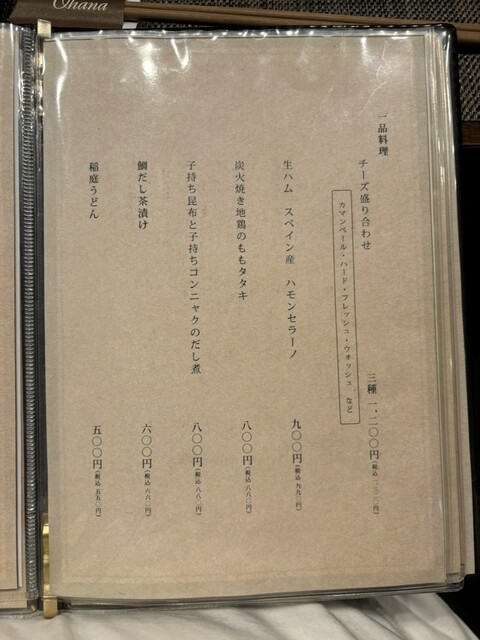 Ohana
一品料理
チーズ盛り合わせ 三種 一、二〇〇円(税込 一、三二〇円)
カマンベール・ハード・フレッシュ・ウオッシュ など
生ハム スペイン産 ハモンセラーノ 九〇〇円(税込 九九〇円)
炭火焼き地鶏のももタタキ 八〇〇円(税込 八八〇円)
子持ち昆布と子持ちコンニャクのだし煮 八〇〇円(税込 八八〇円)
鯛だし茶漬け 六〇〇円(税込 六六〇円)
稲庭うどん 五〇〇円(税込 五五〇円)